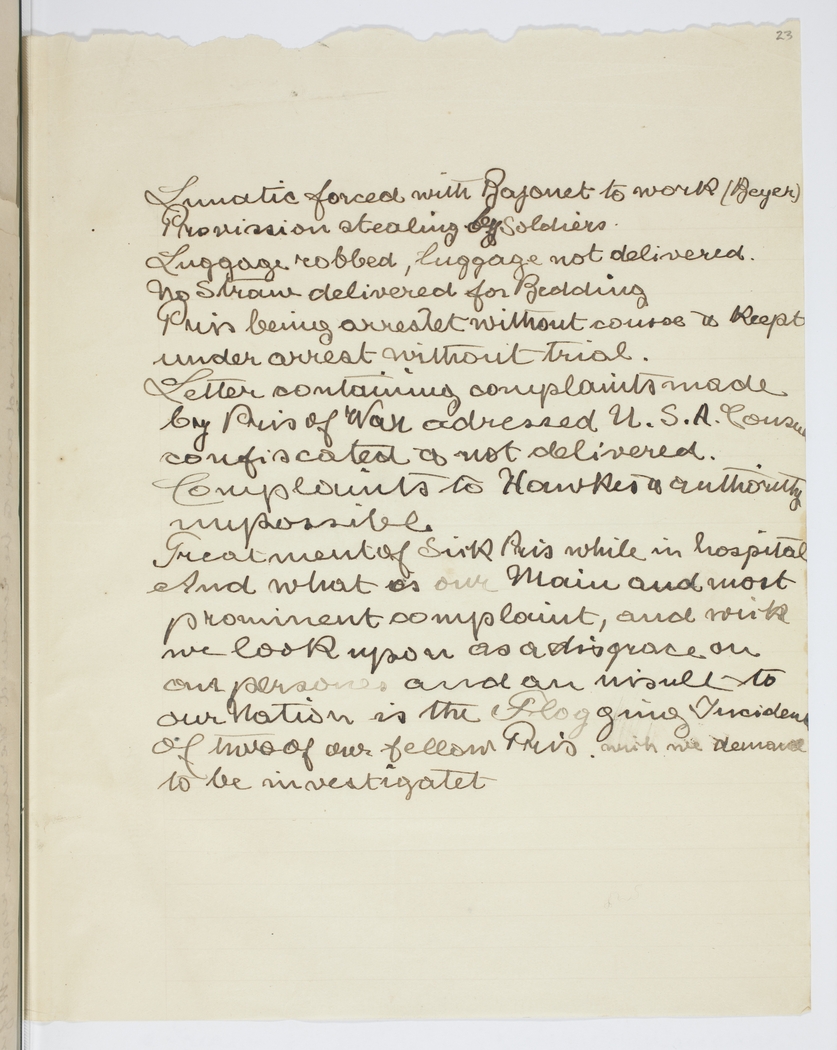 23
Lunatic forced with Bajonet to work (Beyer)
Provission stealing by Soldiers.
Luggage robbed, luggage not delivered.
No Straw delivered for Bedding
Pris being arrestet without couse & keept
under arrest without trial.
Letter containing complaints made
by Pris of War adressed U. S. A. Consu
confiscated & not delivered.
Complaints to Hawkes authority
impossible
Treatment of Sick Pris while in hospital
And what is our Main and most
prominent complaint, and wich
we look upon as a disgrace on
our persones and an insult to
our Nation is the Flogging Inciden
of two of our fellow Pris. wich we demand
to be investigatet